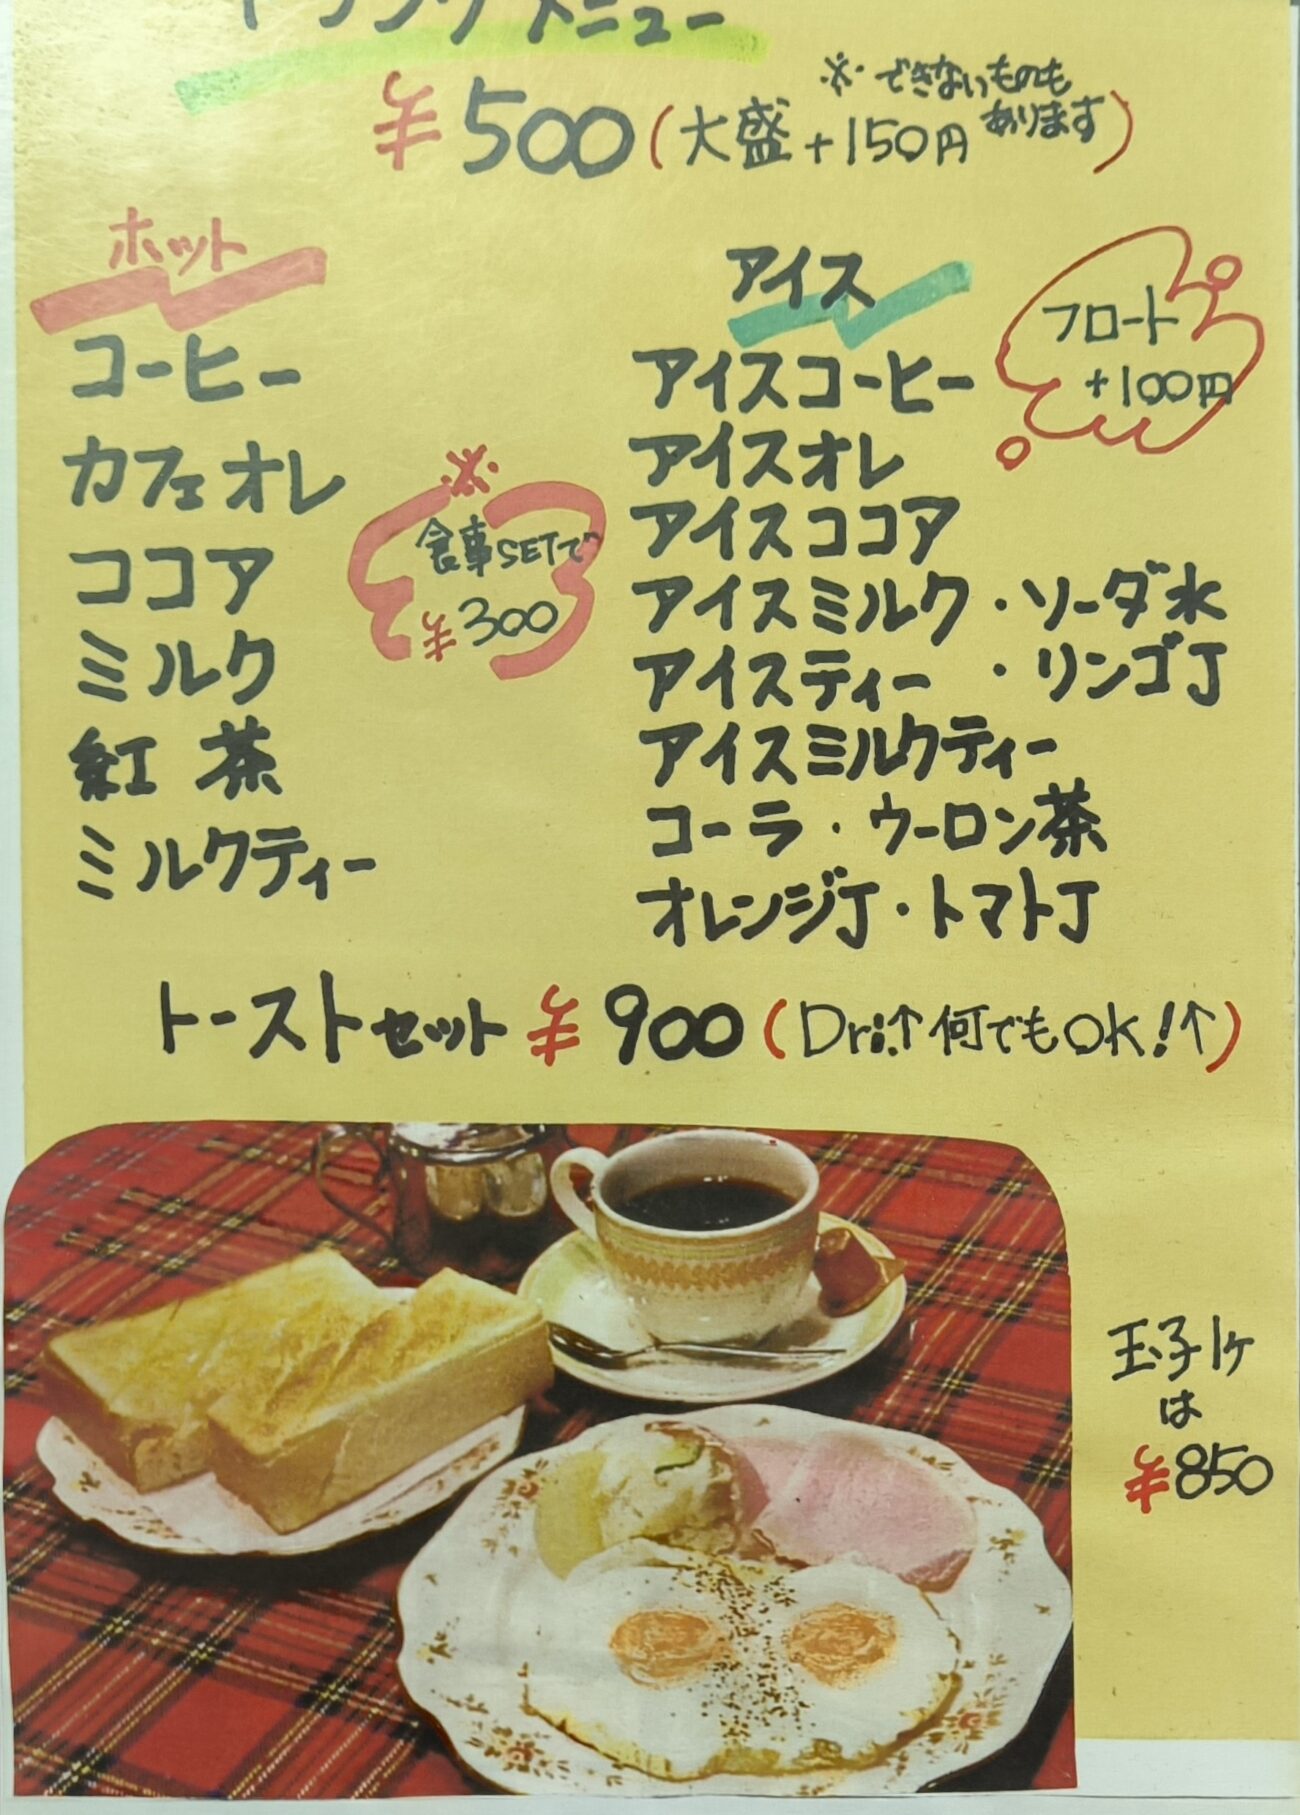 ドリンクメニュー
¥500(大盛+150円 ※できないものもあります)
ホット
コーヒー
カフェオレ
ココア
ミルク
紅茶
ミルクティー
※
食事SETで
¥300
アイス
アイスコーヒー
アイスオレ
アイスココア
アイスミルク・ソーダ水
アイスティー・リンゴJ
アイスミルクティー
コーラ・ウーロン茶
オレンジJ・トマトJ
フロート
+100円
トーストセット ¥900(Dri.↑何でもOK!↑)
玉子1ヶ
は
¥850